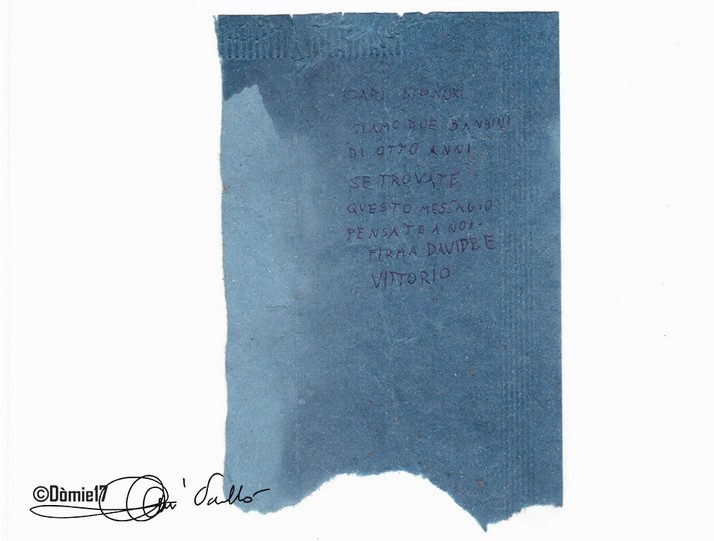 CARI SIGNORI
SIAMO DUE BANBINI
DI OTTO ANNI
SE TROVATE
QUESTO MESSAGIO
PENSATE A NOI.
FIRMA DAVIDE E
VITTORIO
©Dòmie17